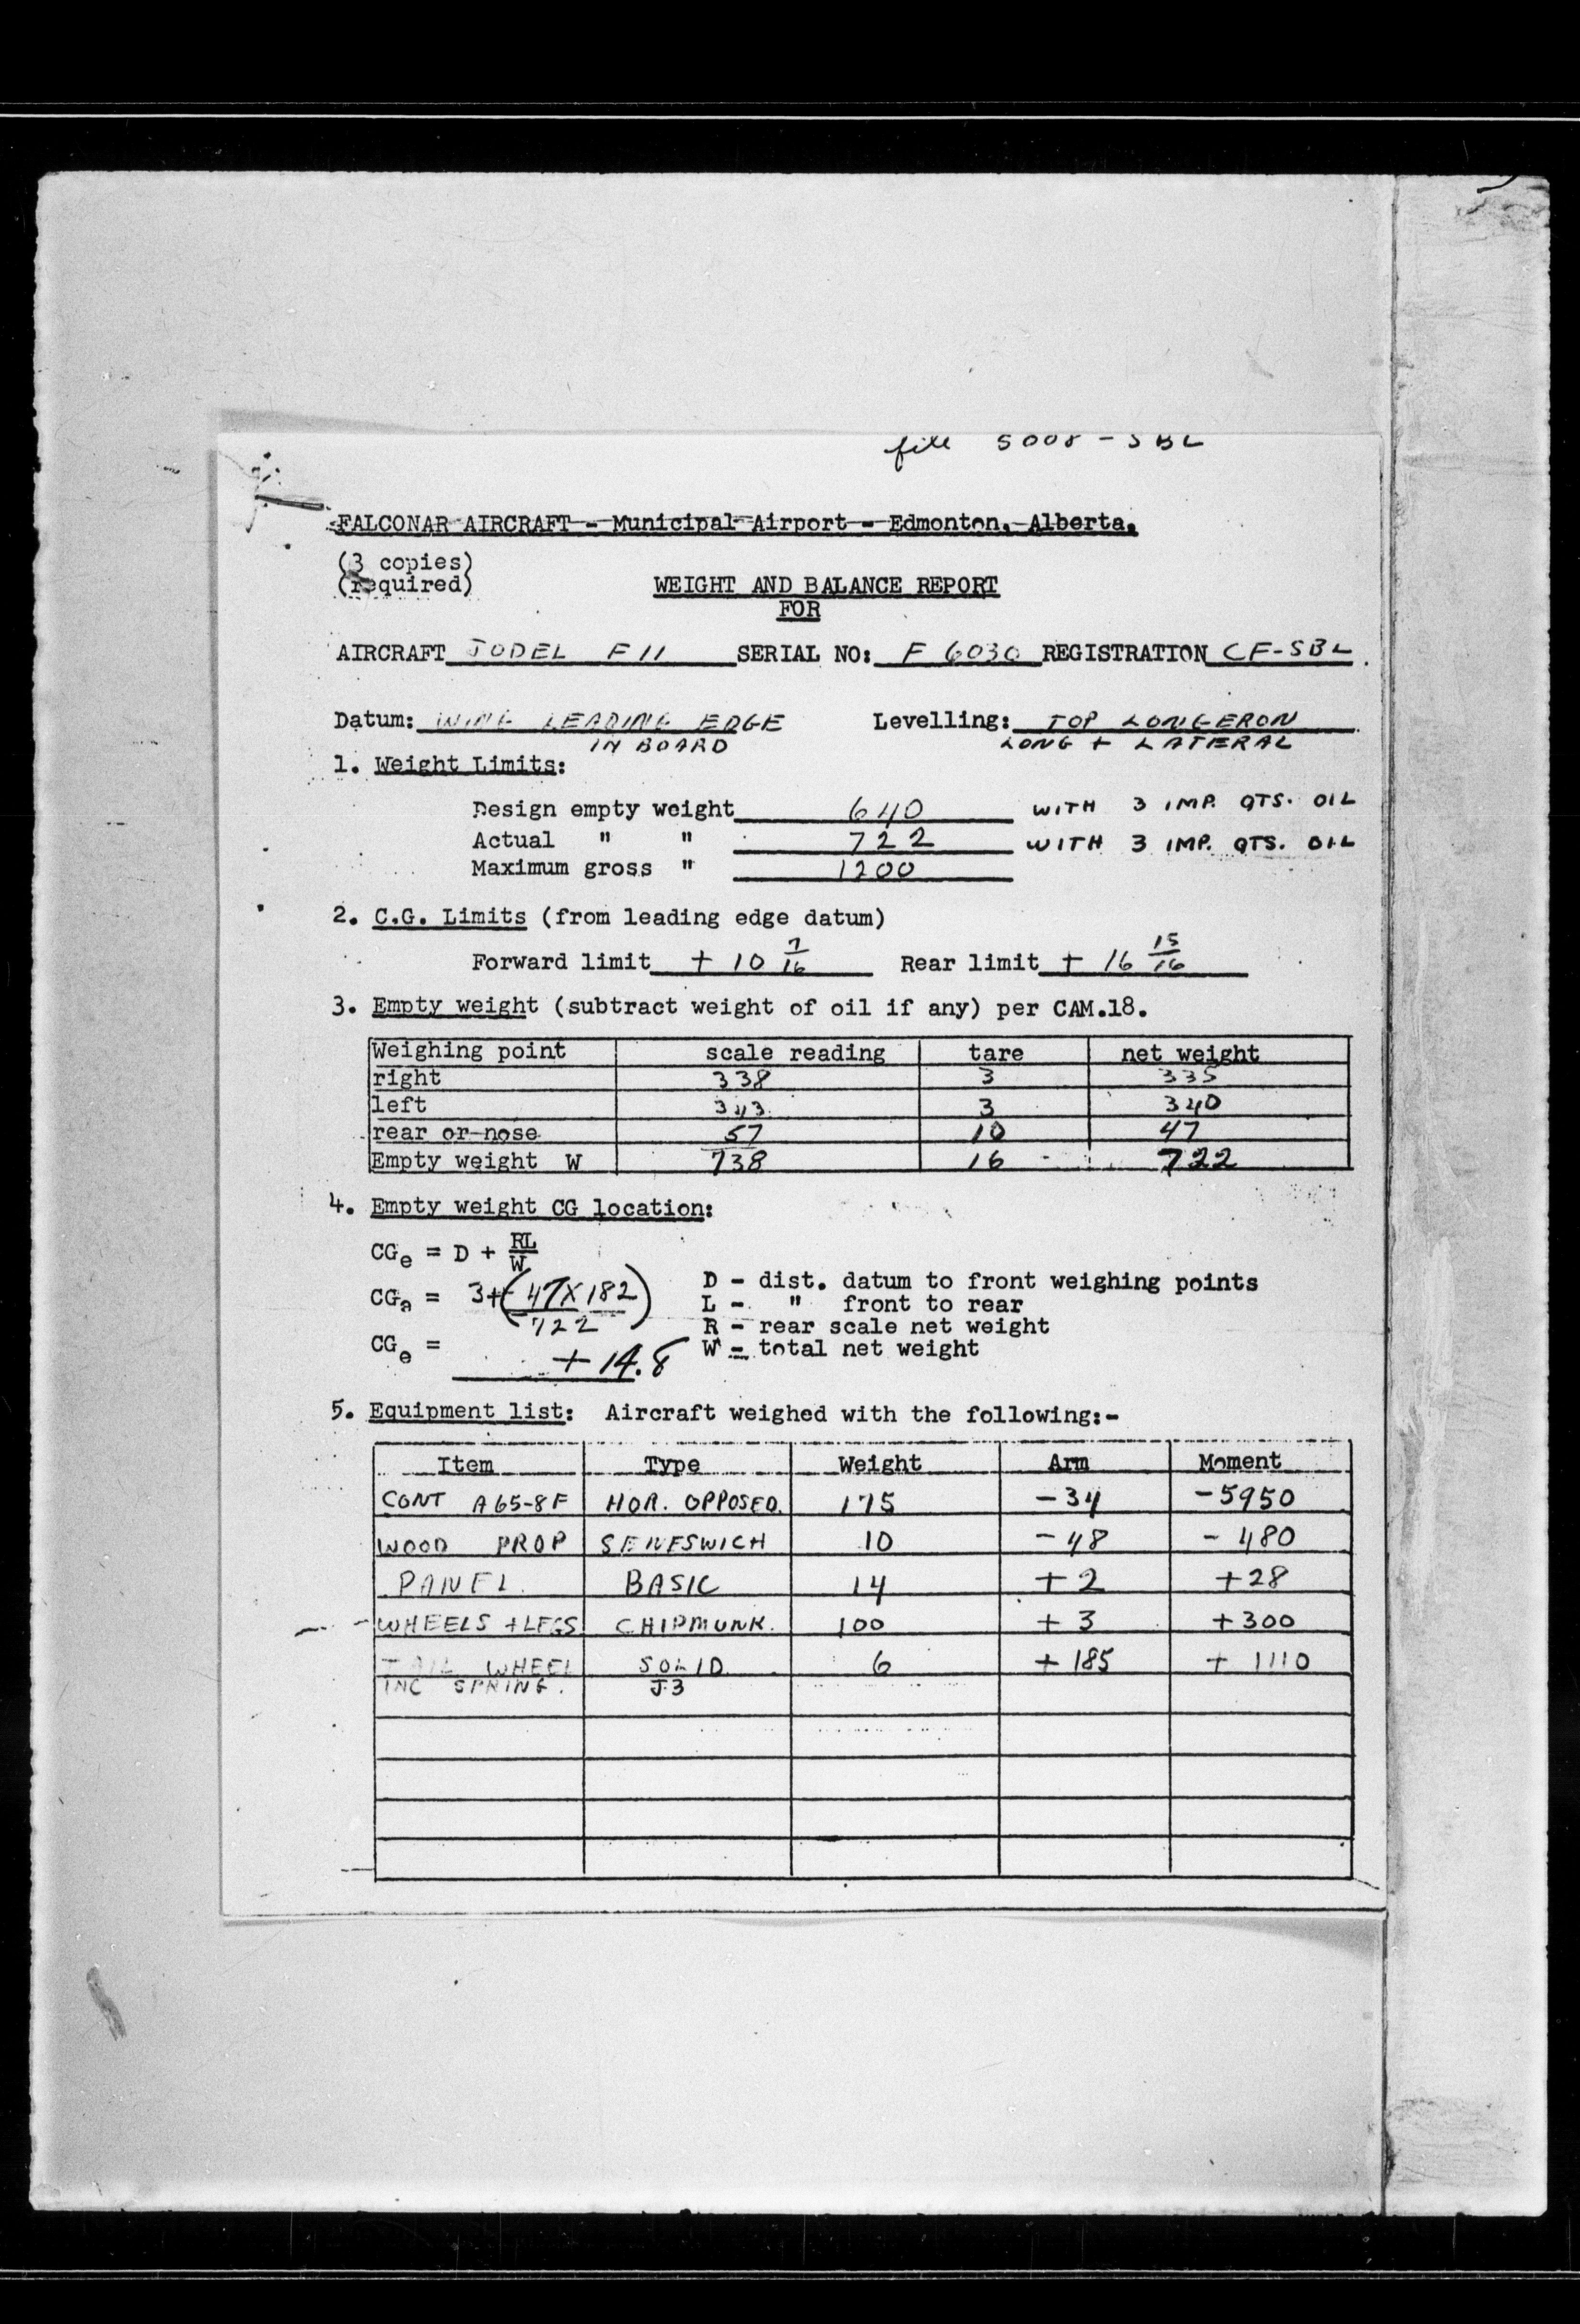 file 5008-SBL
FALCONAR AIRCRAFT - Municipal Airport - Edmonton, Alberta.
(3 copies)
(required)
WEIGHT AND BALANCE REPORT
FOR
AIRCRAFT JODEL F11 SERIAL NO: F 6030 REGISTRATION CF-SBL
Datum: WING LEADING EDGE Levelling: TOP LONGERON
IN BOARD LONG + LATERAL
1. Weight Limits:
Design empty weight 640 WITH 3 IMP. QTS. OIL
Actual " " 722 WITH 3 IMP. QTS. OIL
Maximum gross " 1200
2. C.G. Limits (from leading edge datum)
Forward limit + 10 7/16 Rear limit + 16 15/16
3. Empty weight (subtract weight of oil if any) per CAM.18.
Weighing point scale reading tare net weight
right 338 3 335
left 343 3 340
rear or nose 57 10 47
Empty weight W 738 16 722
4. Empty weight CG location:
CGe = D + RL/W
CGe = 3+(47X182/722) D - dist. datum to front weighing points
L - " front to rear
R - rear scale net weight
CGe = + 14.8 W - total net weight
5. Equipment list: Aircraft weighed with the following:-
Item Type Weight Arm Moment
CONT A65-8F HOR. OPPOSED. 175 -34 -5950
WOOD PROP SENFSWICH 10 -48 - 480
PANEL BASIC 14 +2 +28
WHEELS + LEGS CHIPMUNK. 100 + 3 +300
TAIL WHEEL SOLID 6 + 185 + 1110
INC SPRING. J.3